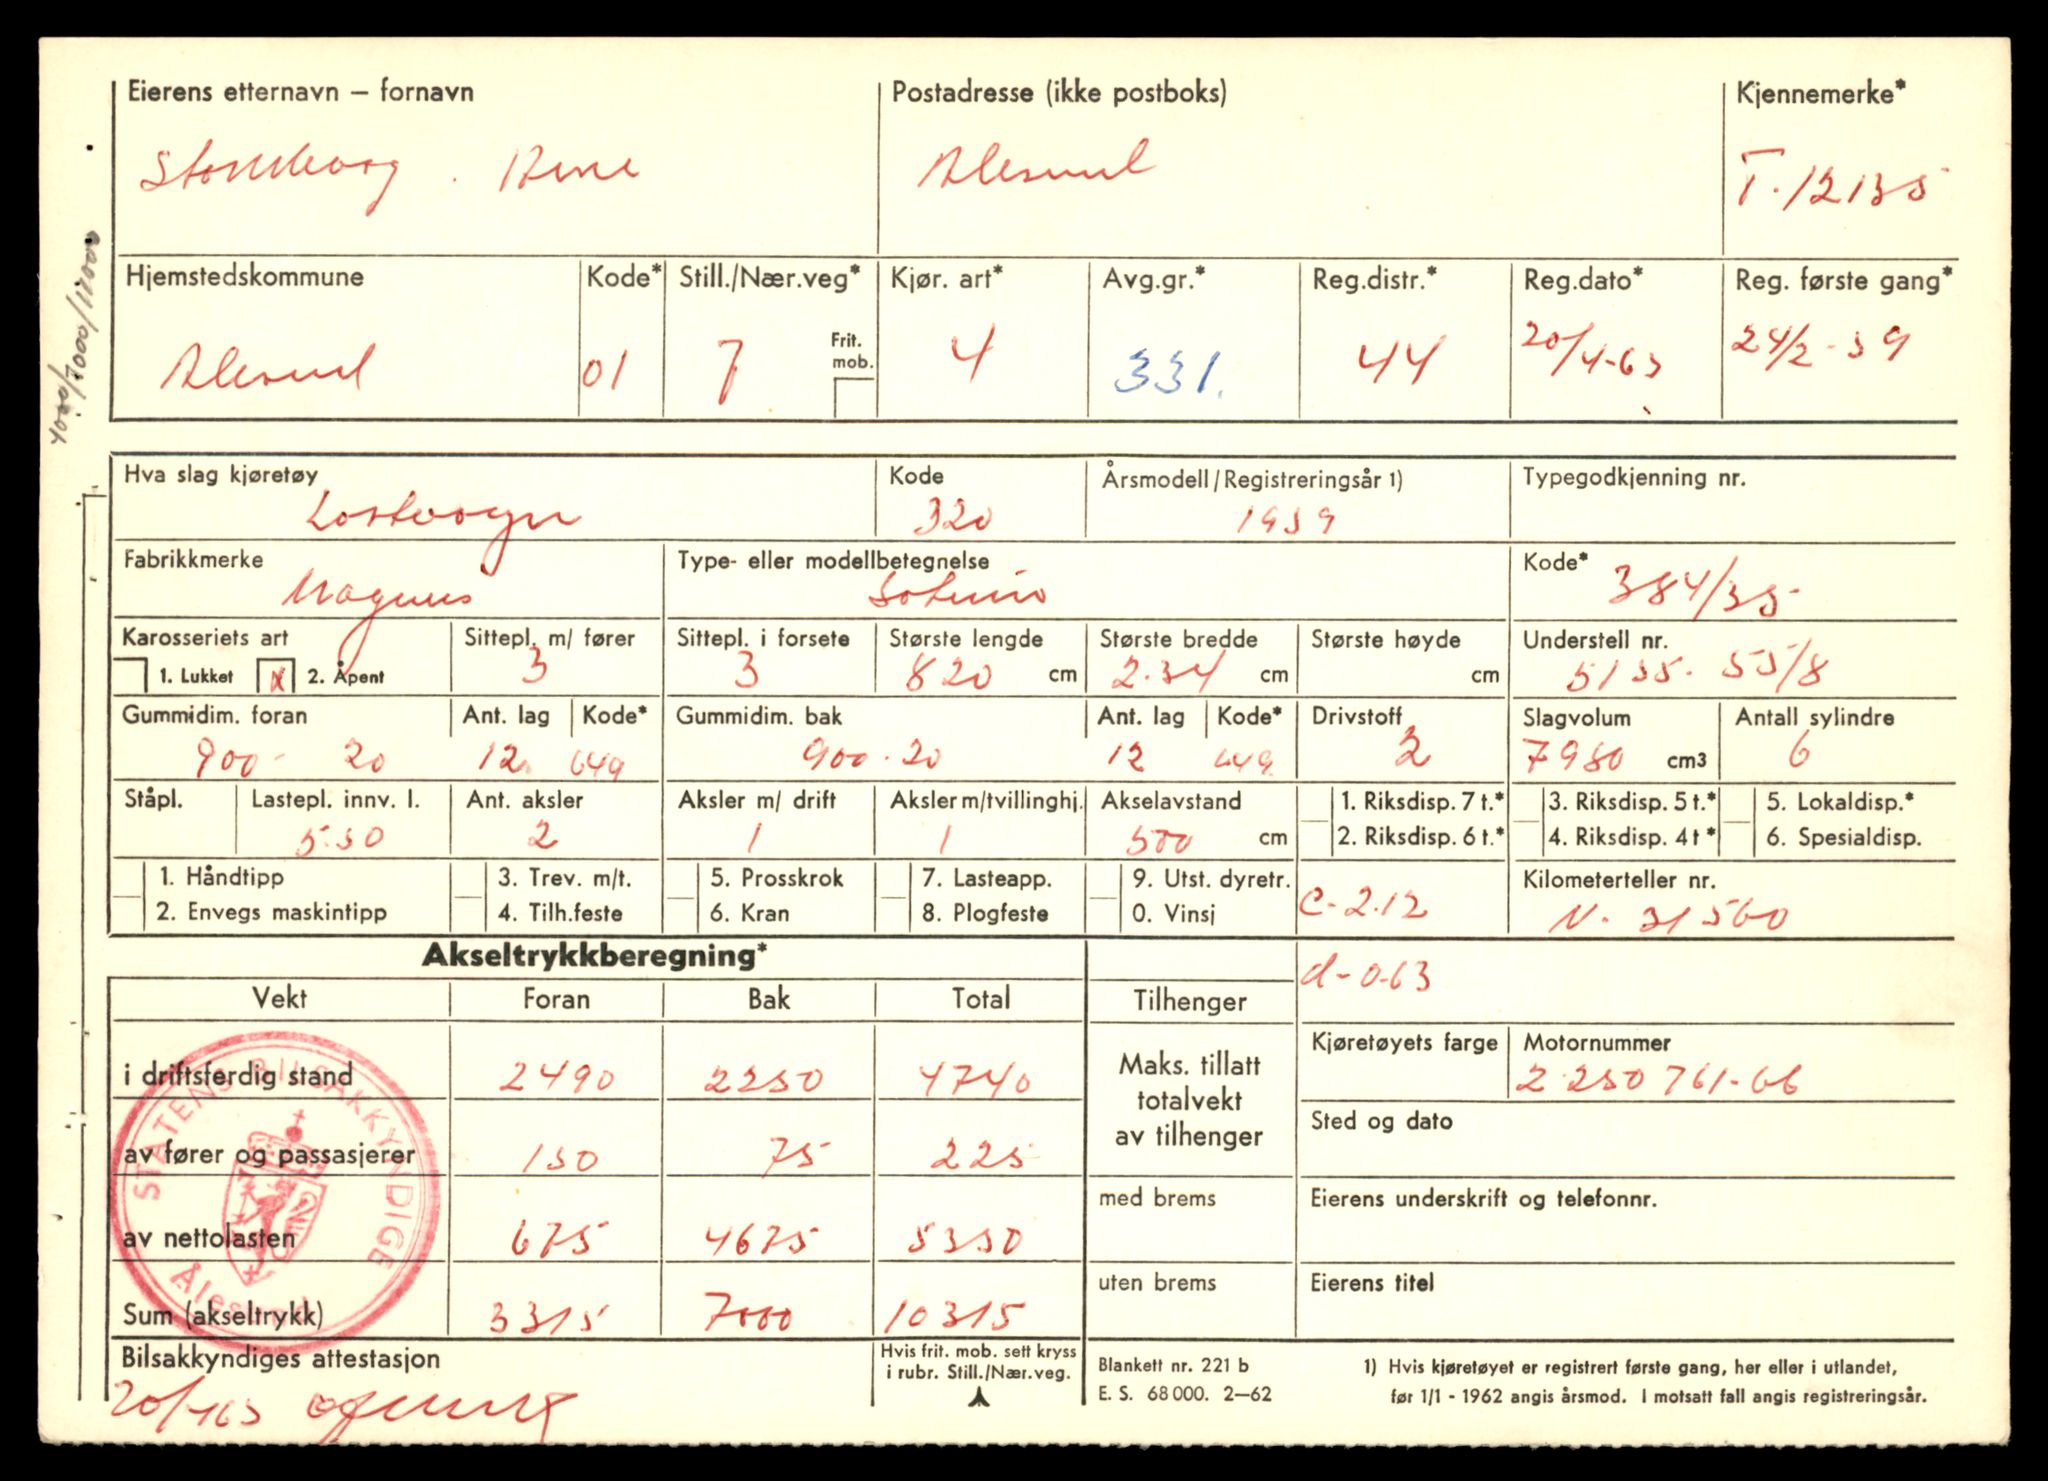 Eierens etternavn – fornavn
Postadresse (ikke postboks)
Kjennemerke*
Arne
Ålesund
T-12135
Hjemstedskommune
Kode*
Still./Nær.veg*
Kjør. art*
Avg.gr.*
Reg.distr.*
Reg.dato*
Reg. første gang*
Ålesund
01
7
Frit. mob.
4
331.
44
20/4-63
24/2-59
4000/7000/11000
Hva slag kjøretøy
Kode
Årsmodell/Registreringsår 1)
Typegodkjenning nr.
Lastevogn
320
1959
Fabrikkmerke
Type- eller modellbetegnelse
Kode*
Magirus
Saturn
384/35
Karosseriets art
Sittepl. m/ fører
Sittepl. i forsete
Største lengde
Største bredde
Største høyde
Understell nr.
1. Lukket
x
2. Åpent
3
3
820 cm
2.34 cm
cm
5155. 55/8
Gummidim. foran
Ant. lag
Kode*
Gummidim. bak
Ant. lag
Kode*
Drivstoff
Slagvolum
Antall sylindre
900- 20
12
649
900-20
12
649
2
7980 cm3
6
Ståpl.
Lastepl. innv. l.
Ant. aksler
Aksler m/ drift
Aksler m/tvillinghj.
Akselavstand
1. Riksdisp. 7 t.*
3. Riksdisp. 5 t.*
5. Lokaldisp.*
5.50
2
1
1
500 cm
2. Riksdisp. 6 t.*
4. Riksdisp. 4 t*
6. Spesialdisp.
1. Håndtipp
3. Trev. m/t.
5. Prosskrok
7. Lasteapp.
9. Utst. dyretr.
Kilometerteller nr.
2. Envegs maskintipp
4. Tilh.feste
6. Kran
8. Plogfeste
0. Vinsj
C-2.12
N. 31560
Akseltrykkberegning*
d-0.63
Vekt
Foran
Bak
Total
Tilhenger
Kjøretøyets farge
Motornummer
i driftsferdig stand
2490
2250
4740
Maks. tillatt
totalvekt
av tilhenger
2250761-66
Sted og dato
av fører og passasjerer
150
75
225
med brems
Eierens underskrift og telefonnr.
av nettolasten
675
4675
5350
uten brems
Eierens titel
Sum (akseltrykk)
3315
7000
10315
STATENS BILSAKKYNDIGE
Ålesund
Bilsakkyndiges attestasjon
Hvis frit. mob. sett kryss
i rubr. Still./Nær.veg.
20/4-63
Blankett nr. 221 b
E. S. 68 000. 2–62
1) Hvis kjøretøyet er registrert første gang, her eller i utlandet,
før 1/1 - 1962 angis årsmod. I motsatt fall angis registreringsår.